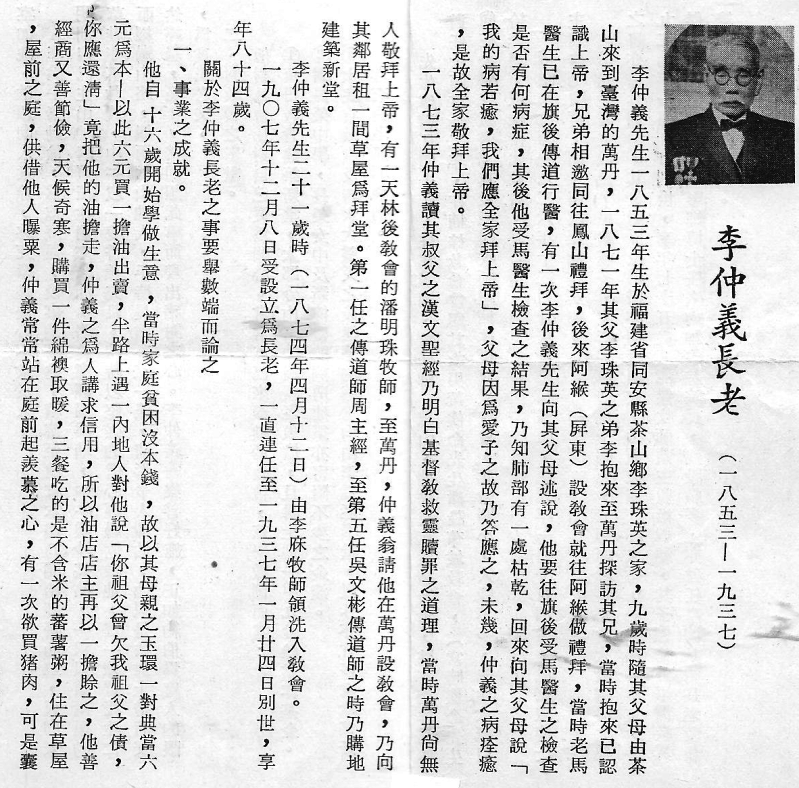 李仲義長老
(一八五三—一九三七)
李仲義先生一八五三年生於福建省同安縣茶山鄉李珠英之家,九歲時隨其父母由茶
山來到臺灣的萬丹,一八七一年其父李珠英之弟李抱來至萬丹探訪其兄,當時抱來已認
識上帝,兄弟相邀同往鳳山禮拜,後來阿緱(屏東)設敎會就往阿緱做禮拜,當時老馬
醫生已在旗後傳道行醫,有一次李仲義先生向其父母述說,他要往旗後受馬醫生之檢查
是否有何病症,其後他受馬醫生檢查之結果,乃知肺部有一處枯乾,回來向其父母說「
我的病若癒,我們應全家拜上帝」,父母因爲愛子之故乃答應之,未幾,仲義之病痊癒
,是故全家敬拜上帝。
一八七三年仲義讀其叔父之漢文聖經乃明白基督敎救靈贖罪之道理,當時萬丹尙無
人敬拜上帝,有一天林後敎會的潘明珠牧師,至萬丹,仲義翁請他在萬丹設敎會,乃向
其鄰居租一間草屋爲拜堂。第一任之傳道師周主經,至第五任吳文彬傳道師之時乃購地
建築新堂。
李仲義先生二十一歲時(一八七四年四月十二日)由李庥牧師領洗入敎會。
一九〇七年十二月八日受設立爲長老,一直連任至一九三七年一月廿四日別世,享
年八十四歲。
關於李仲義長老之事要舉數端而論之
一、事業之成就。
他自十六歲開始學做生意,當時家庭貧困沒本錢,故以其母親之玉環一對典當六
元爲本—以此六元買一擔油出賣,半路上遇一內地人對他說「你祖父曾欠我祖父之債,
你應還淸」竟把他的油擔走,仲義之爲人講求信用,所以油店店主再以一擔賒之,他善
經商又善節儉,天候奇寒,購買一件綿襖取暖,三餐吃的是不含米的蕃薯粥,住在草屋
,屋前之庭,供借他人曝粟,仲義常常站在庭前起羨慕之心,有一次欲買猪肉,可是囊